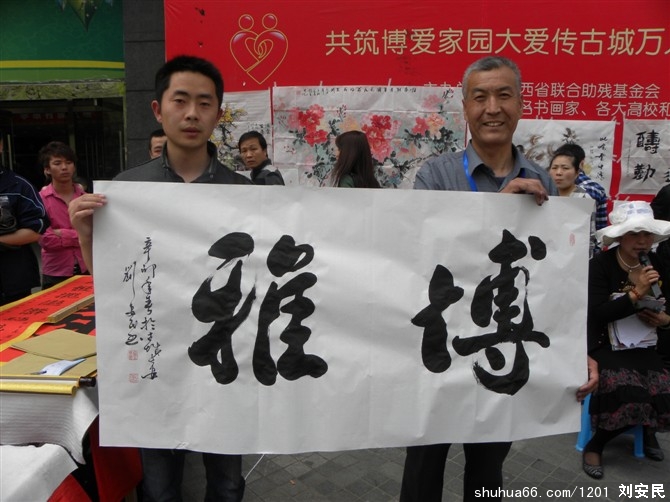 共筑博爱家园大爱传古城万人
西省联合助残基金会
书画家、各大高校和
博雅
辛卯年春於古城长安
刘安民书
shuhua66.com/1201 刘安民